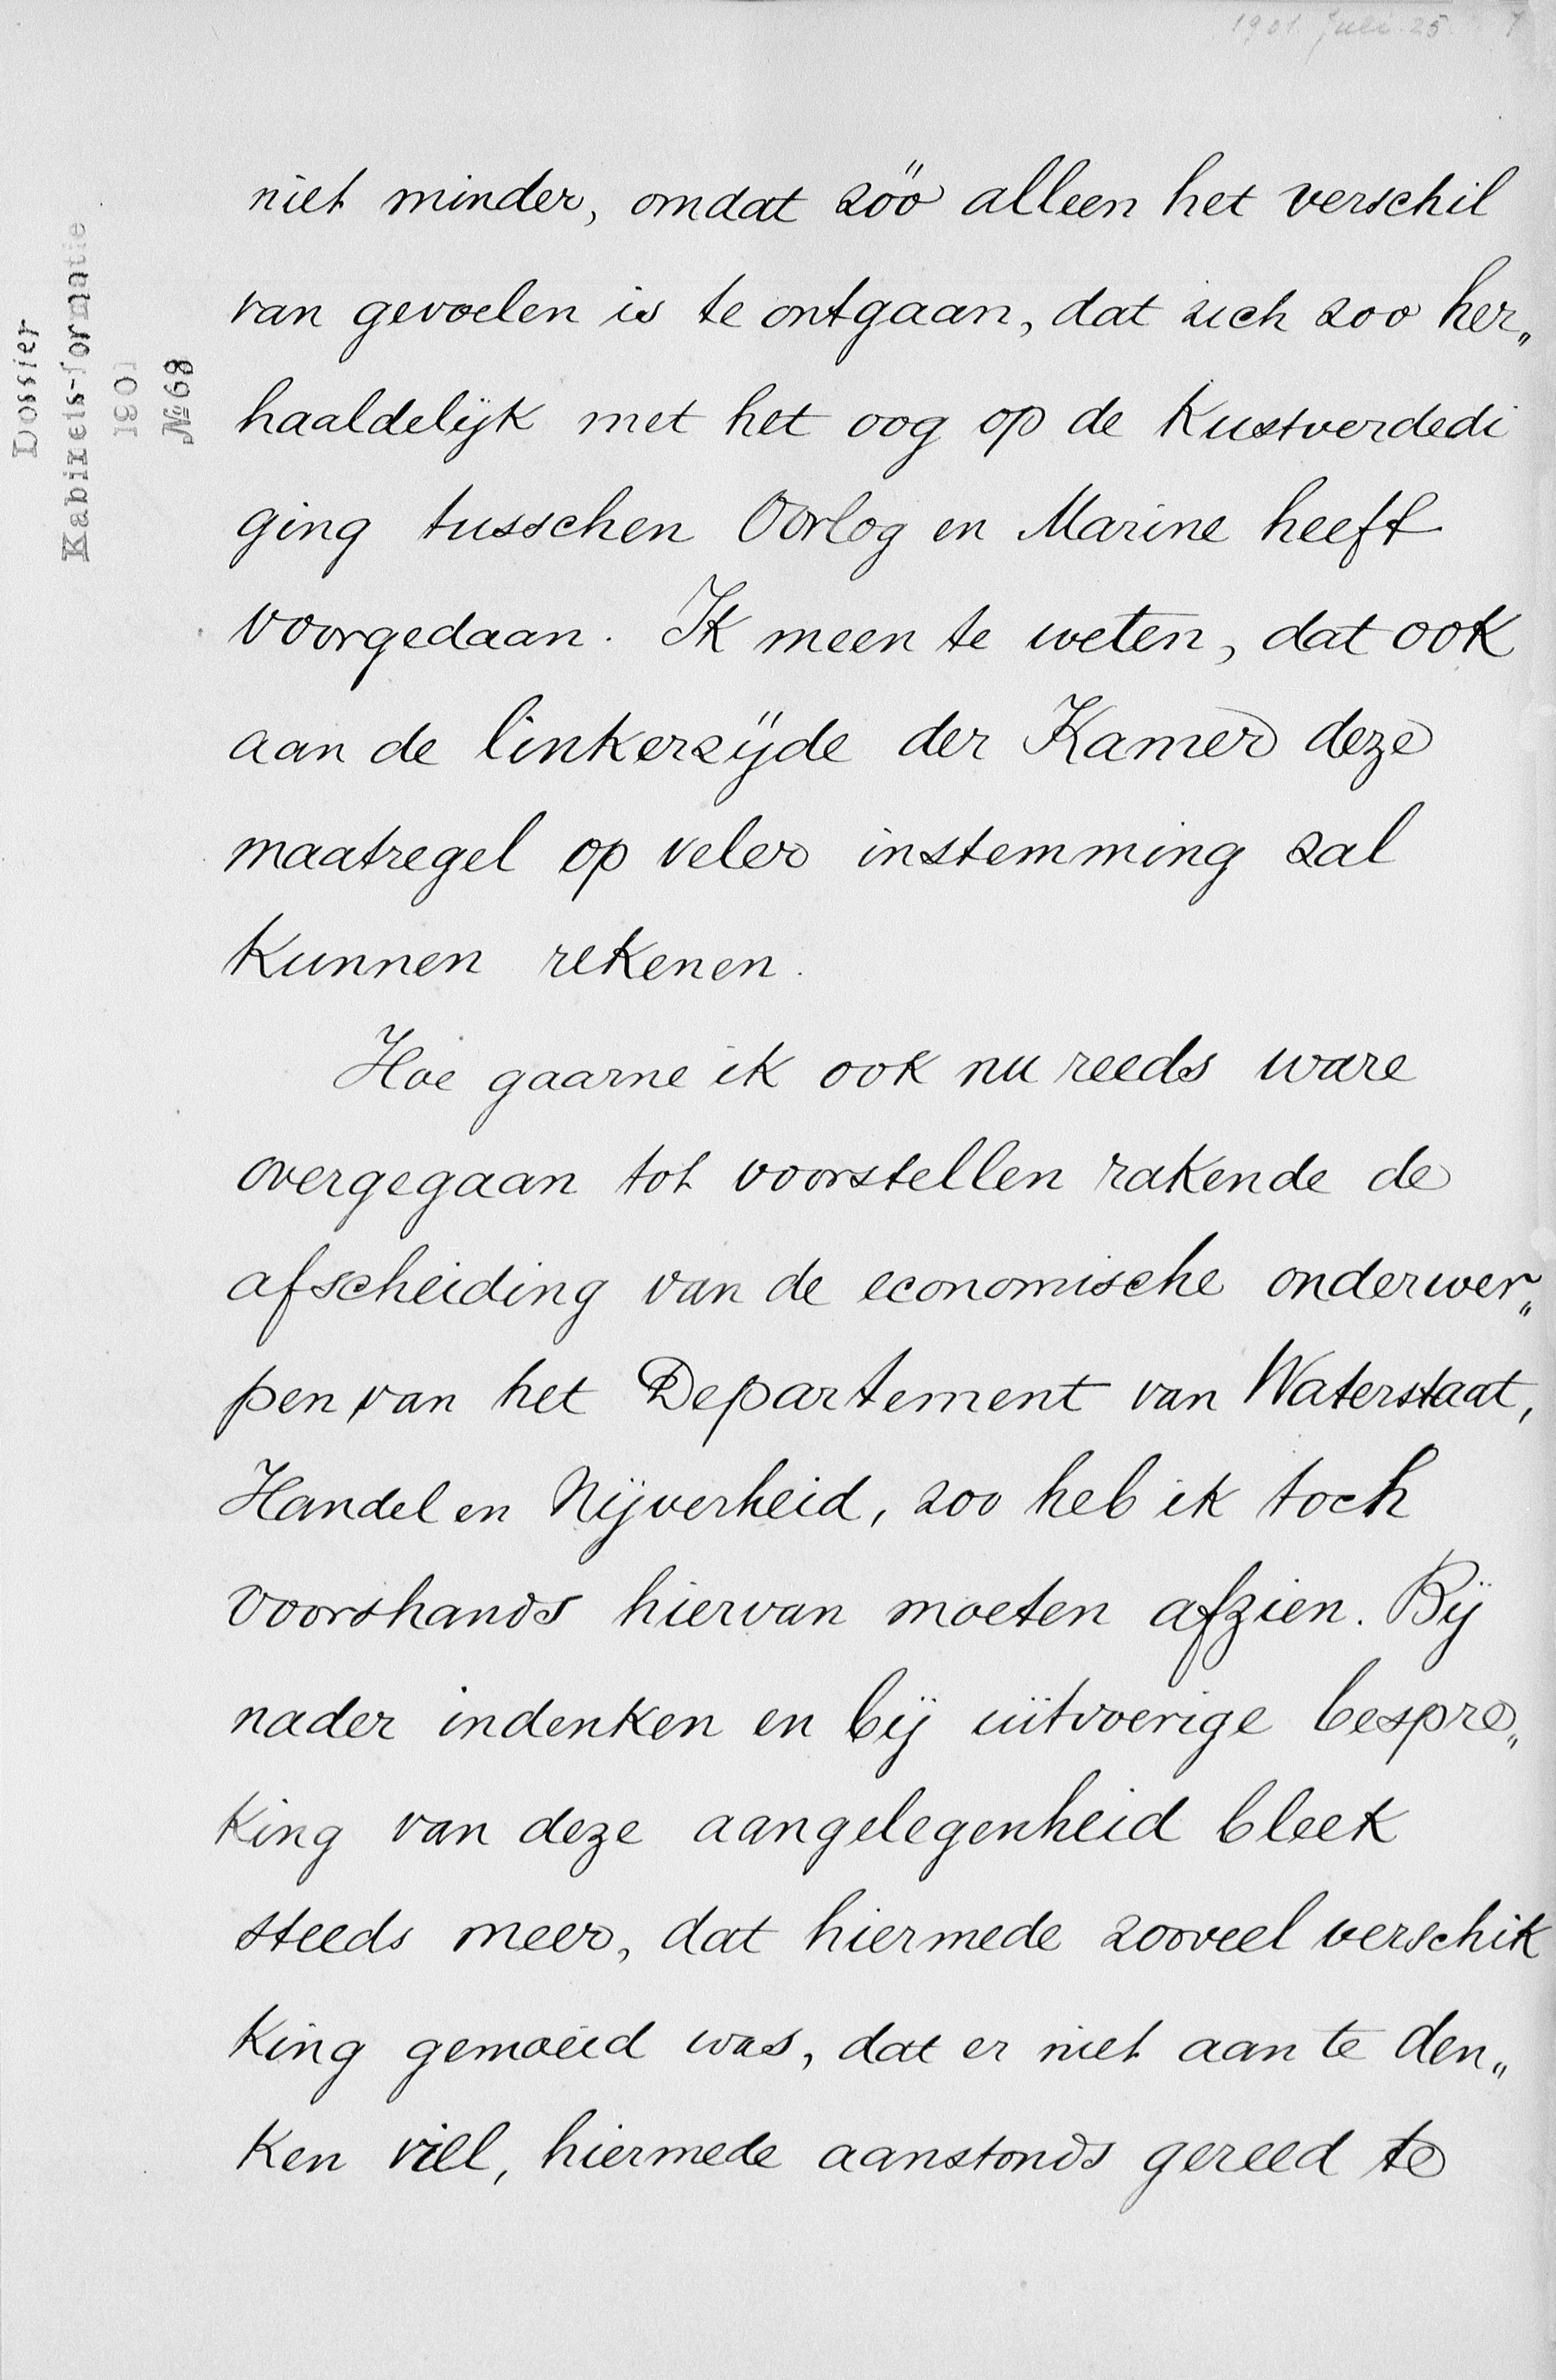 1901 Juli 25 7
Dossier
Kabinets-formatie
1901
№ 68
niet minder, omdat zóó alleen het verschil
van gevoelen is te ontgaan, dat zich zoo her„
haaldelijk met het oog op de Kustverdedi
ging tusschen Oorlog en Marine heeft
voorgedaan. Ik meen te weten, dat ook
aan de linkerzijde der Kamer deze
maatregel op veler instemming zal
kunnen rekenen.
Hoe gaarne ik ook nu reeds ware
overgegaan tot voorstellen rakende de
afscheiding van de economische onderwer„
pen van het Departement van Waterstaat,
Handel en Nijverheid, zoo heb ik toch
voorshands hiervan moeten afzien. Bij
nader indenken en bij uitvoerige bespre„
king van deze aangelegenheid bleek
steeds meer, dat hiermede zooveel verschik
king gemoeid was, dat er niet aan te den„
ken viel, hiermede aanstonds gereed te